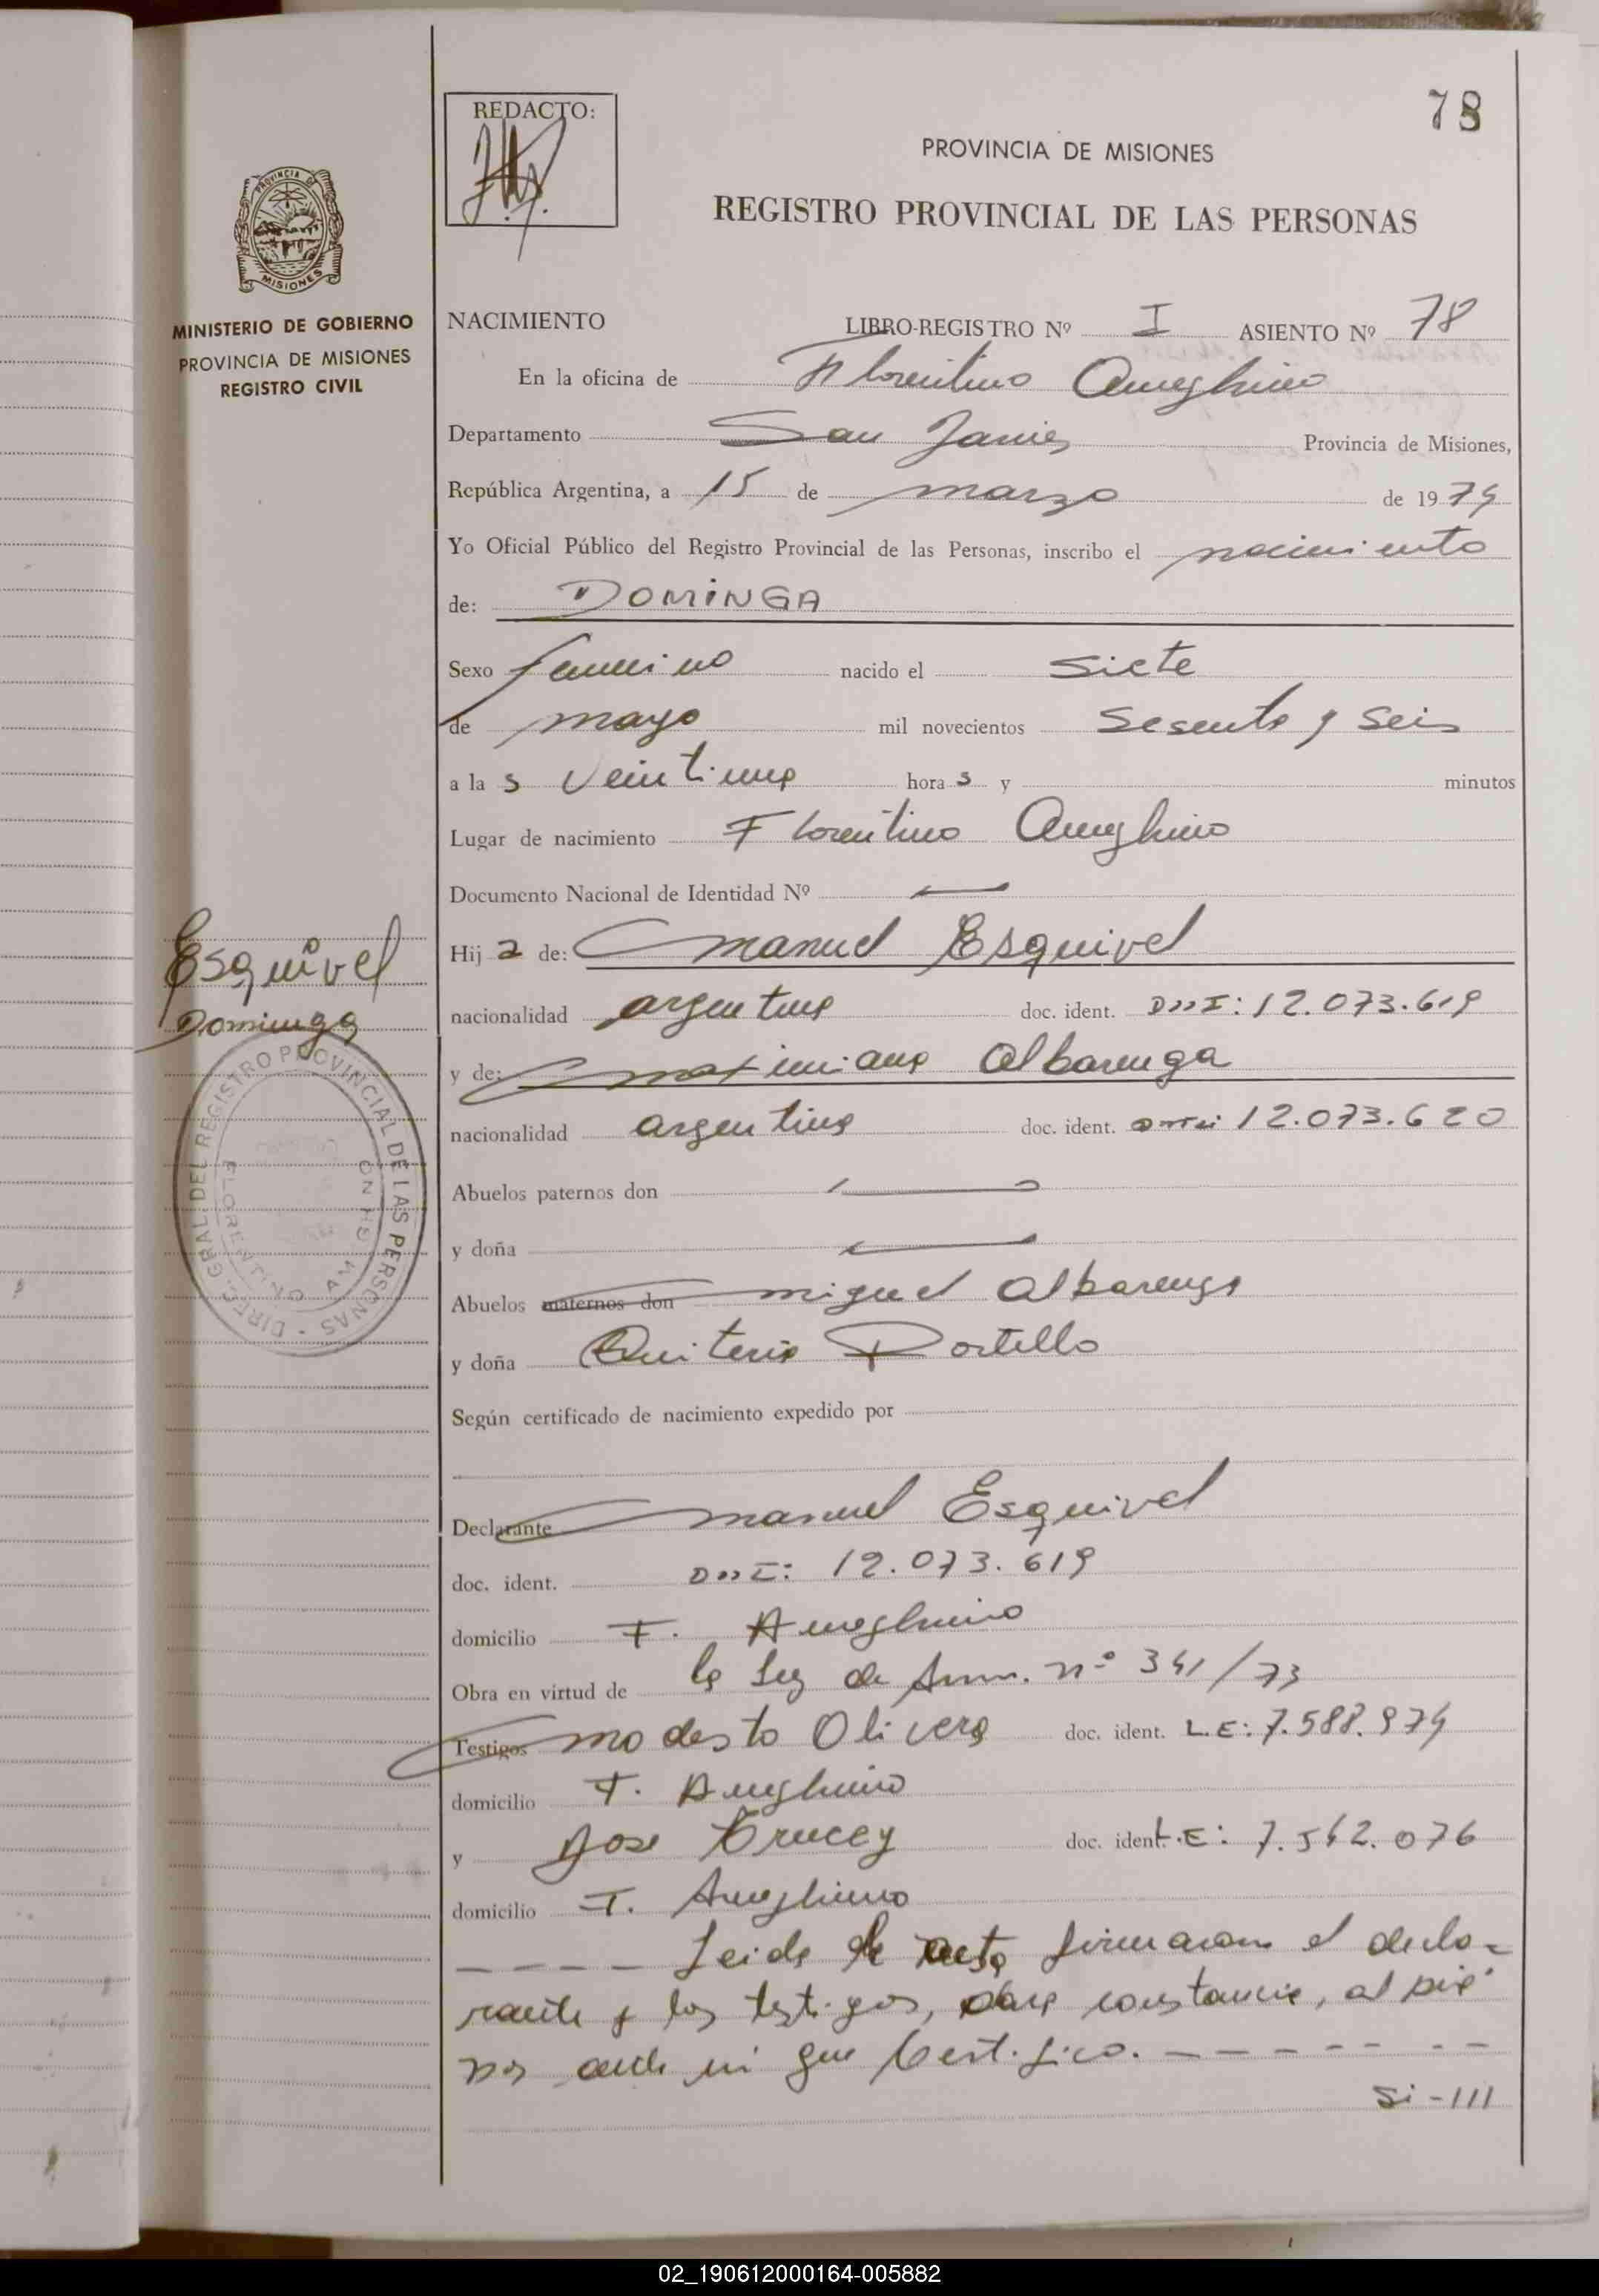 78
REDACTO:
PROVINCIA DE MISIONES
REGISTRO PROVINCIAL DE LAS PERSONAS
PROVINCIA DE
MISIONES
MINISTERIO DE GOBIERNO
PROVINCIA DE MISIONES
REGISTRO CIVIL
NACIMIENTO LIBRO-REGISTRO Nº I ASIENTO Nº 78
En la oficina de Florentino Ameghino
Departamento San Javier Provincia de Misiones,
República Argentina, a 15 de marzo de 1974
Yo Oficial Público del Registro Provincial de las Personas, inscribo el nacimiento
de: DOMINGA
Sexo femenino nacido el siete
de mayo mil novecientos sesenta y seis
a la s veintiuna hora s y minutos
Lugar de nacimiento Florentino Ameghino
Documento Nacional de Identidad Nº —
Hij a de: Manuel Esquivel
Esquivel
Dominga
nacionalidad argentina doc. ident. DNI: 12.073.619
y de: Maximiana Albarenga
nacionalidad argentina doc. ident. DNI: 12.073.620
DIREC. GRAL. DEL REGISTRO PROVINCIAL DE LAS PERSONAS
FLORENTINO AMEGHINO
Abuelos paternos don —
y doña —
Abuelos maternos don Miguel Albarenga
y doña Quiteria Portillo
Según certificado de nacimiento expedido por
Declarante Manuel Esquivel
doc. ident. DNI: 12.073.619
domicilio F. Ameghino
Obra en virtud de la Ley de Amn. nº 341/73
Testigos Modesto Olivera doc. ident. L.E: 7.588.974
domicilio F. Ameghino
y Jose doc. ident. L.E: 7.542.076
domicilio F. Ameghino
---- Leida el acta firmaron el decla-
rante y los testigos, para constancia, al pie
por ante mi que Certifico. -------
Si-III
02_190612000164-005882